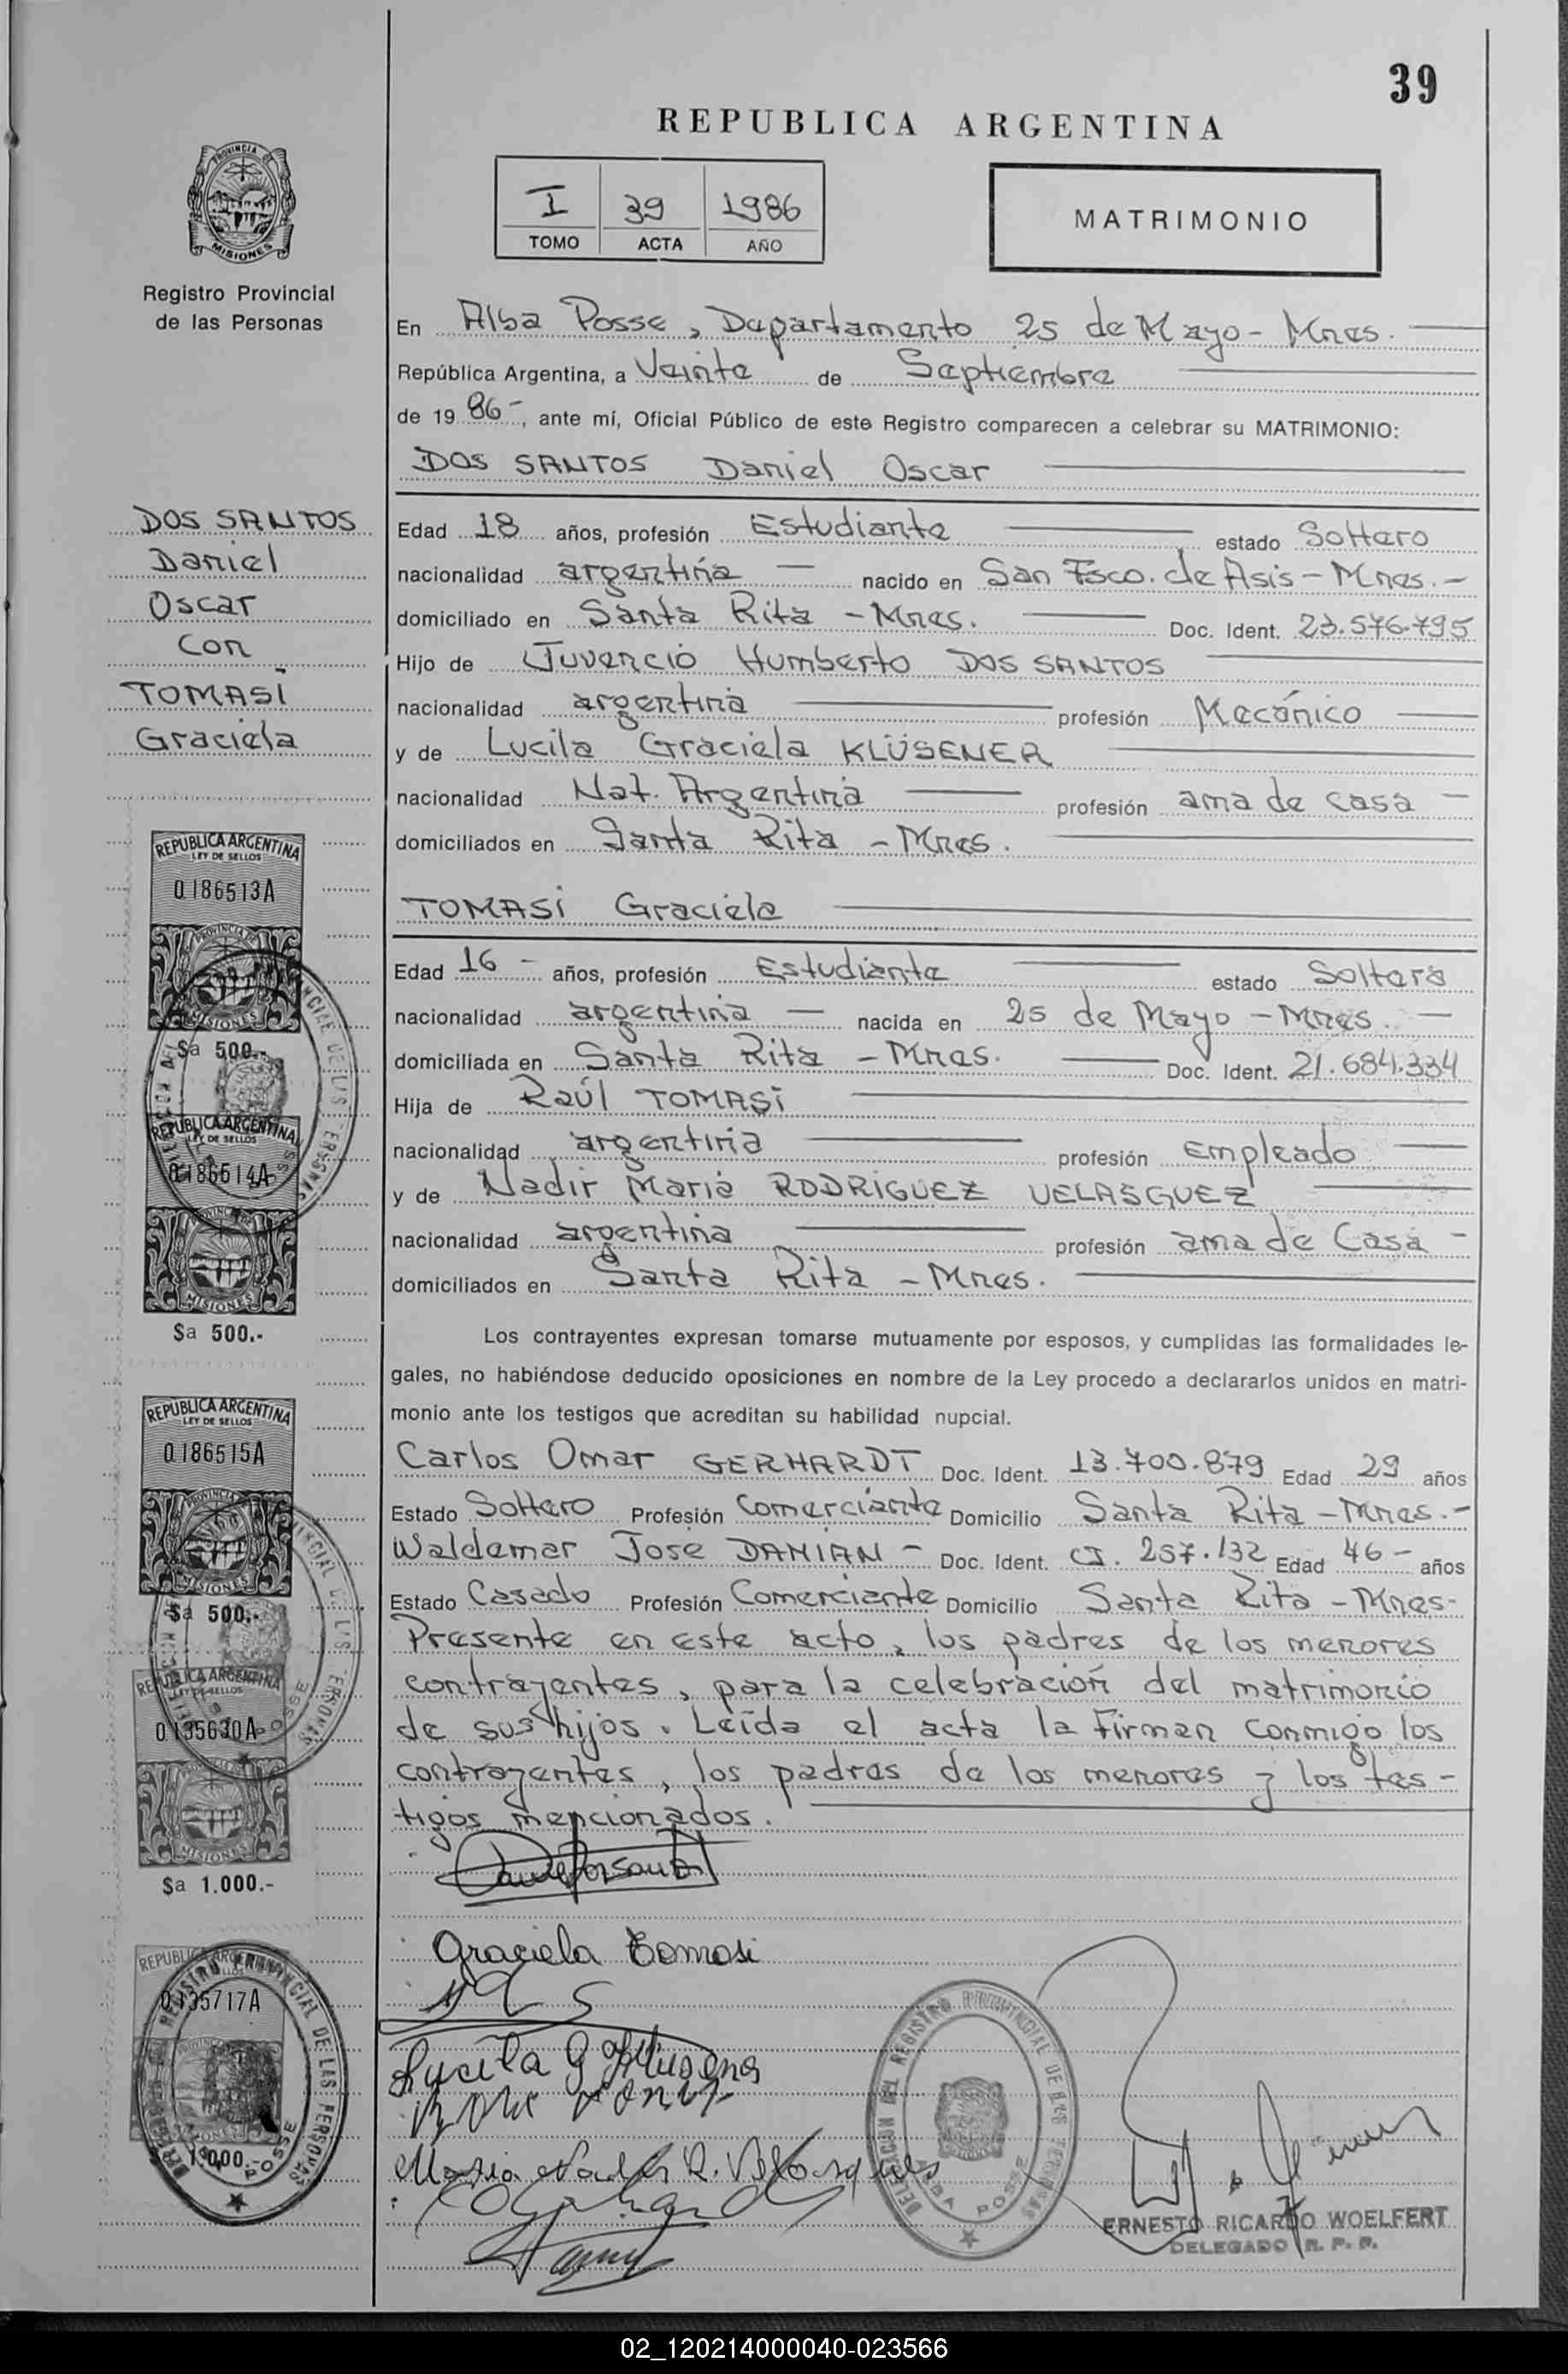 39
REPUBLICA ARGENTINA
I 39 1986
TOMO ACTA AÑO
MATRIMONIO
PROVINCIA DE
MISIONES
Registro Provincial
de las Personas
En Alba Posse, Departamento 25 de Mayo - Mnes.
República Argentina, a Veinte de Septiembre
de 19 86-, ante mí, Oficial Público de este Registro comparecen a celebrar su MATRIMONIO:
DOS SANTOS Daniel Oscar
DOS SANTOS
Daniel
Oscar
con
TOMASI
Graciela
Edad 18 años, profesión Estudiante estado Soltero
nacionalidad argentina — nacido en San Fsco. de Asis - Mnes. -
domiciliado en Santa Rita - Mnes. Doc. Ident. 23.576.795
Hijo de Juvencio Humberto DOS SANTOS
nacionalidad argentina profesión Mecánico
y de Lucila Graciela KLÜSENER
nacionalidad Nat. Argentina profesión ama de casa -
domiciliados en Santa Rita - Mnes.
TOMASI Graciela
Edad 16 - años, profesión Estudiante estado Soltera
nacionalidad argentina — nacida en 25 de Mayo - Mnes. —
domiciliada en Santa Rita - Mnes. Doc. Ident. 21.684.334
Hija de Raúl TOMASI
nacionalidad argentina profesión Empleado
y de Nadir Maria RODRIGUEZ VELASQUEZ
nacionalidad argentina profesión ama de Casa -
domiciliados en Santa Rita - Mnes.
Los contrayentes expresan tomarse mutuamente por esposos, y cumplidas las formalidades le-
gales, no habiéndose deducido oposiciones en nombre de la Ley procedo a declararlos unidos en matri-
monio ante los testigos que acreditan su habilidad nupcial.
Carlos Omar GERHARDT Doc. Ident. 13.700.879 Edad 29 años
Estado Soltero Profesión Comerciante Domicilio Santa Rita - Mnes. -
Waldemar Jose DAMIAN - Doc. Ident. CI. 257.132 Edad 46 - años
Estado Casado Profesión Comerciante Domicilio Santa Rita - Mnes-
Presente en este acto, los padres de los menores
contrayentes, para la celebración del matrimonio
de sus hijos. Leída el acta la firman conmigo los
contrayentes, los padres de los menores y los tes-
tigos mencionados.
Graciela Tomasi
Lucila G
Maria Nadir R. Velasques
DELEGACION DEL REGISTRO PROVINCIAL DE LAS PERSONAS
ALBA POSSE
ERNESTO RICARDO WOELFERT
DELEGADO R. P. P.
REPUBLICA ARGENTINA
LEY DE SELLOS
0186513A
PROVINCIA DE
MISIONES
$a 500.-
REPUBLICA ARGENTINA
LEY DE SELLOS
0186514A
MISIONES
$a 500.-
REPUBLICA ARGENTINA
LEY DE SELLOS
0186515A
PROVINCIA DE
MISIONES
$a 500.-
REPUBLICA ARGENTINA
LEY DE SELLOS
0135630A
MISIONES
$a 1.000.-
REPUBLICA ARGENTINA
0135717A
1.000.-
REGISTRO PROVINCIAL DE LAS PERSONAS
POSSE
02_120214000040-023566